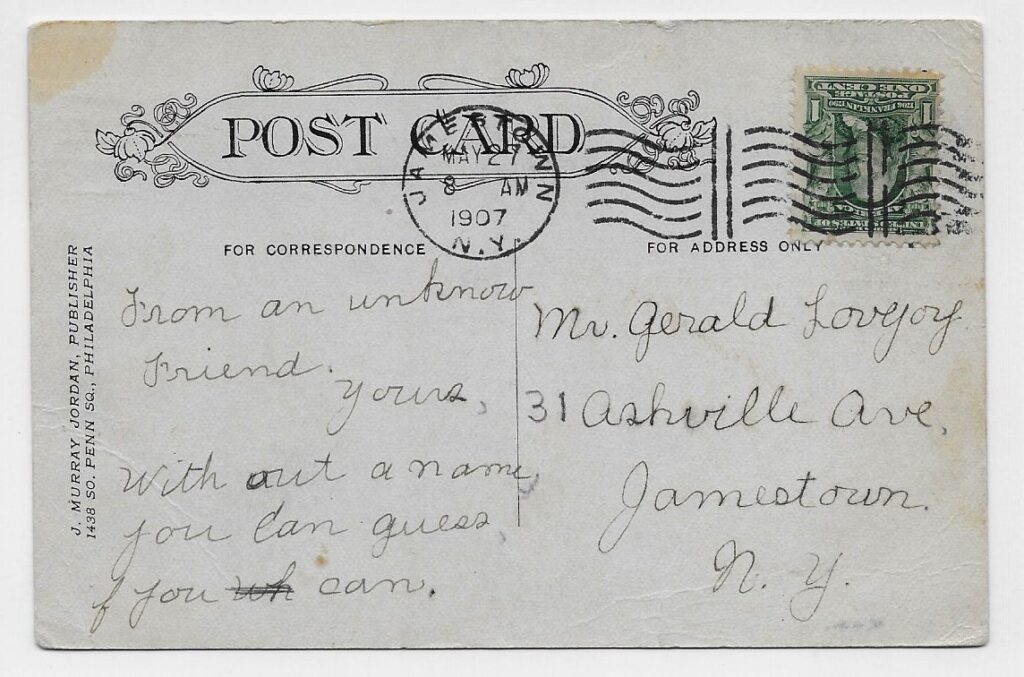 POST CARD
JAMESTOWN
MAY 27
8 AM
1907
N.Y.
1706 FRANKLIN 1790
POSTAGE
ONE CENT
1 1
J. MURRAY JORDAN, PUBLISHER
1438 SO. PENN SQ., PHILADELPHIA
FOR CORRESPONDENCE
From an unknow
Friend.
Yours,
With out a name
you Can guess,
f you wh can.
FOR ADDRESS ONLY
Mr. Gerald Lovejoy
31 Ashville Ave,
Jamestown.
N. Y.